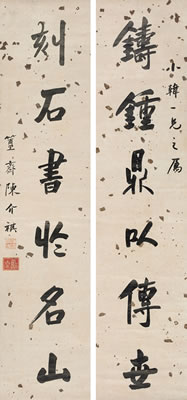 小韓一兄之属
鑄鍾鼎以傳世
刻石書於名山
簠齋陳介祺